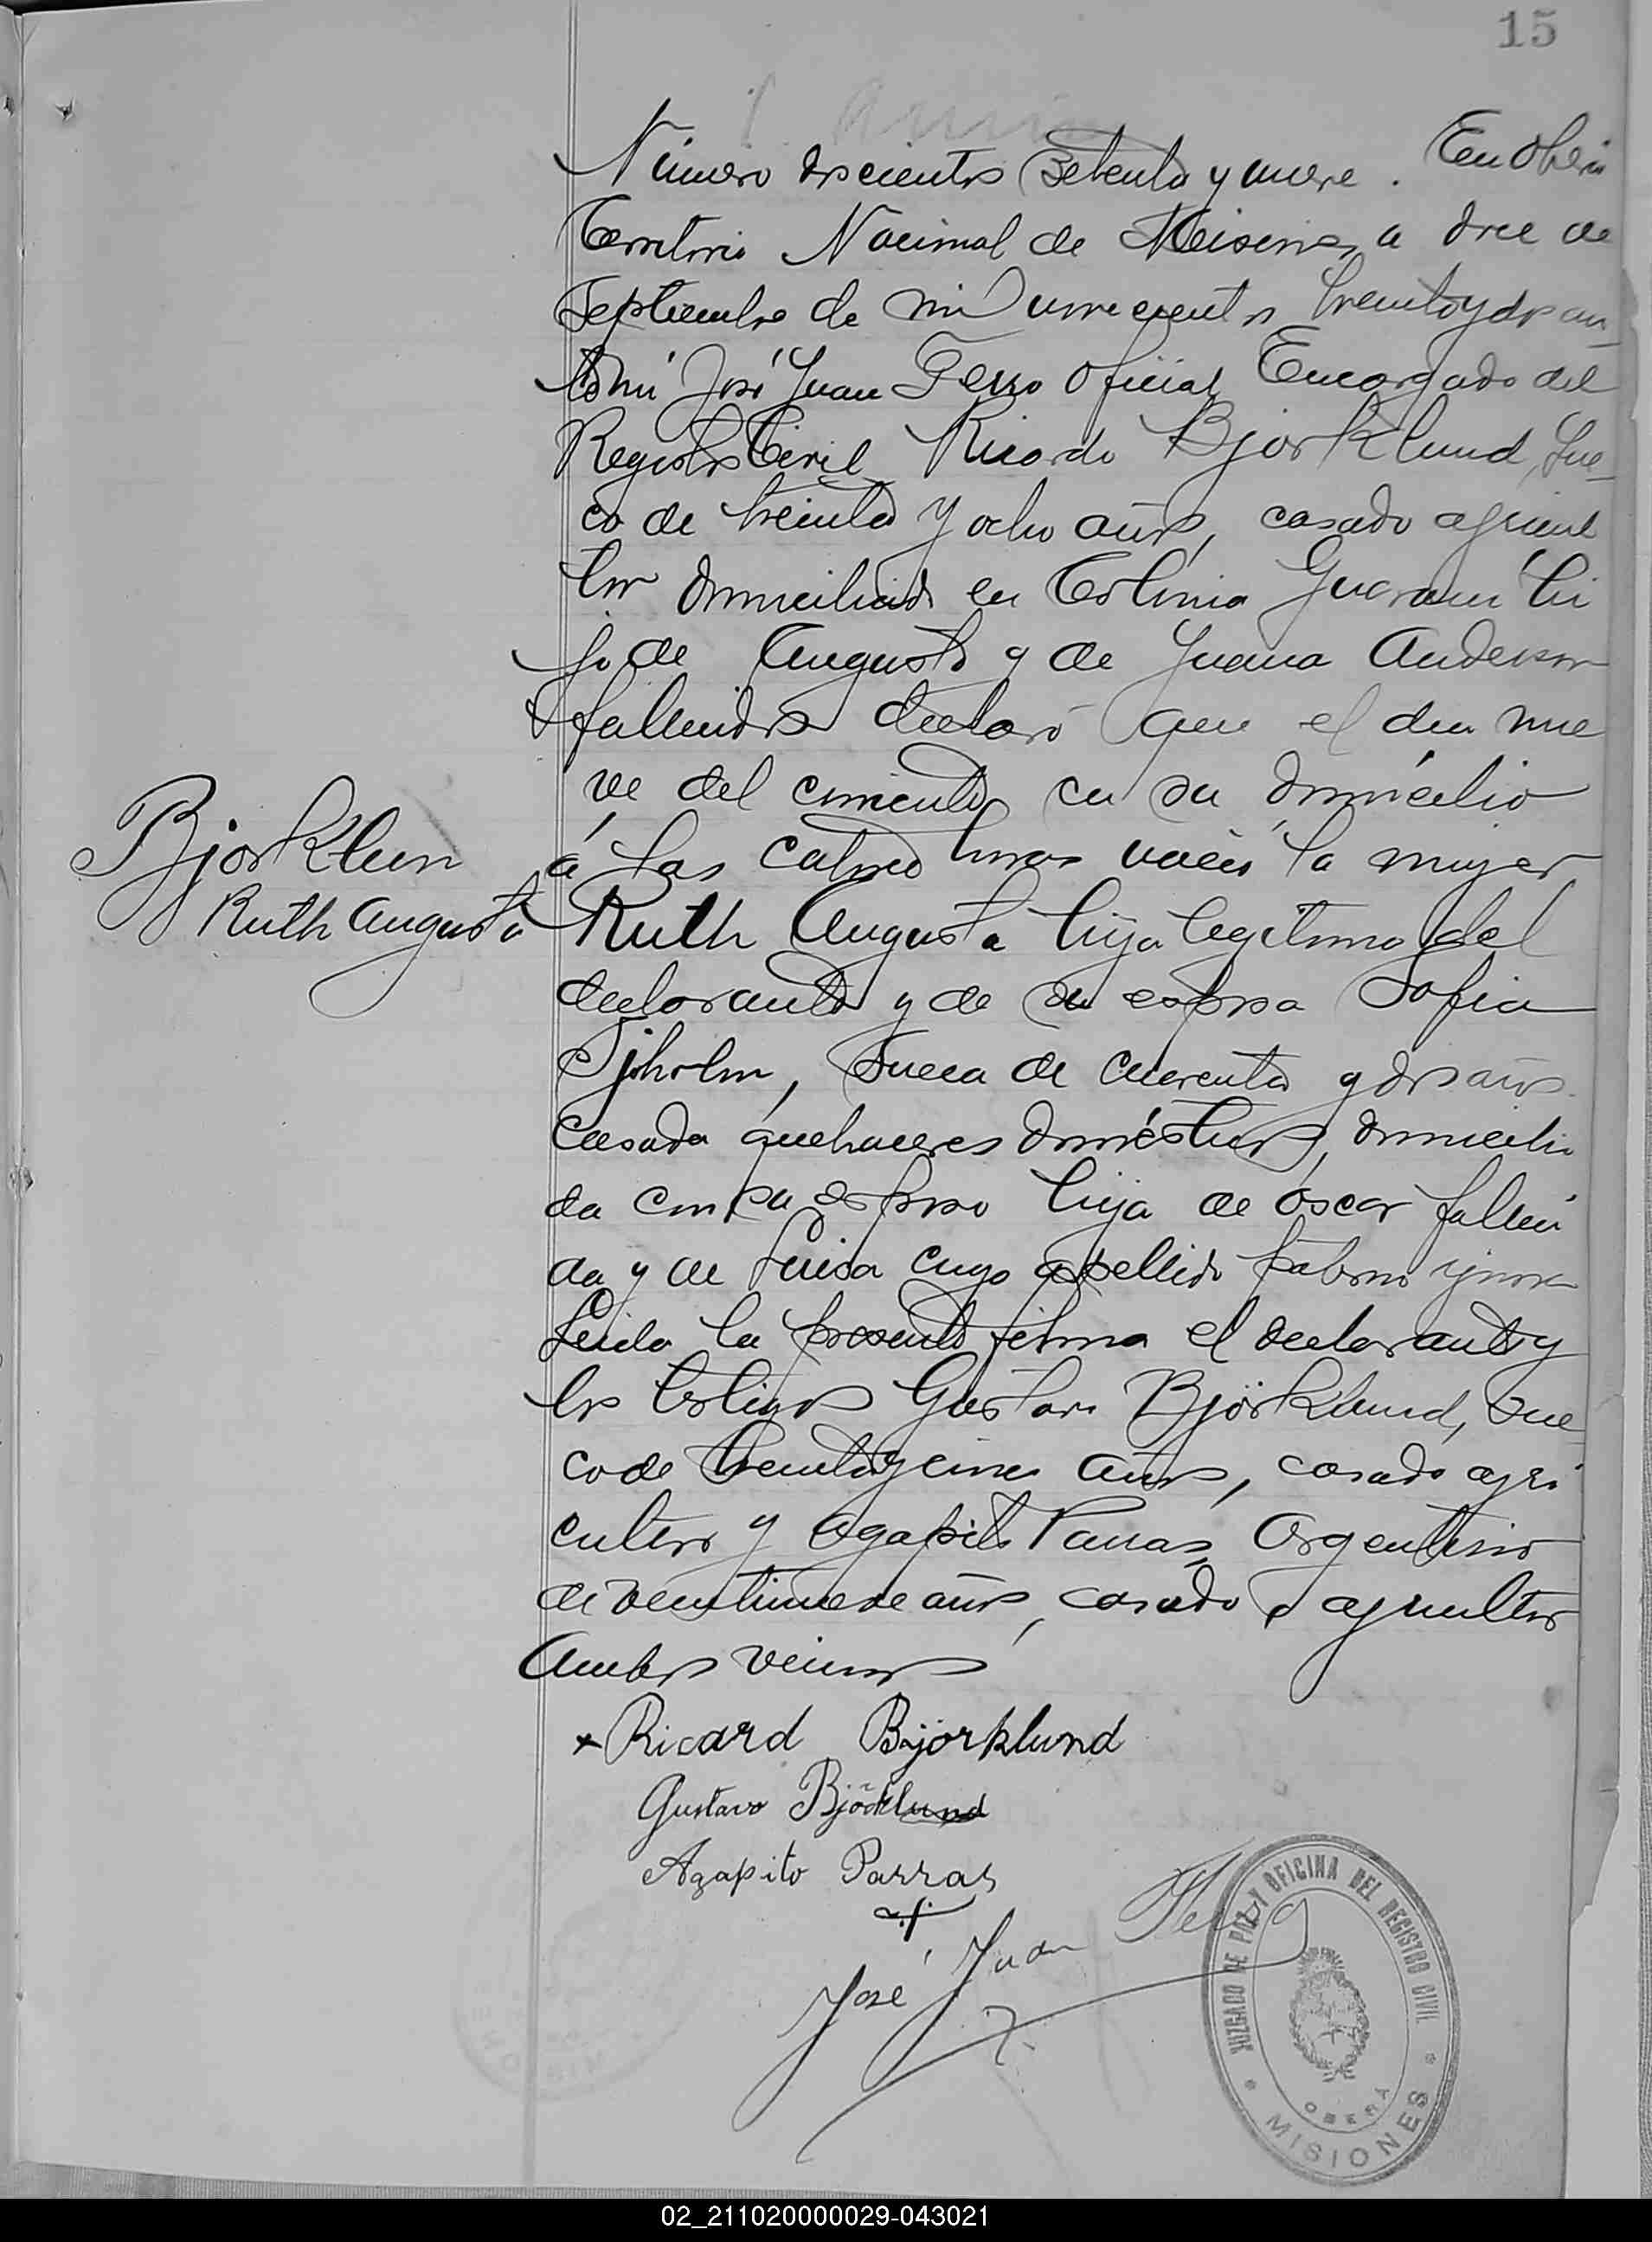 15
Número doscientos setenta y nueve. En Oberá
Territorio Nacional de Misiones, a doce de
Septiembre de mil novecientos treinta y dos an
te mí José Juan Ferro Oficial Encargado del
Registro Civil, Ricardo Bjorklund, Sue-
co de treinta y ocho años, casado agricul
tor domiciliado en Colonia Guaraní hi
jo de Augusto y de Juana Anderson
fallecidos declaró que el dia nue
ve del corriente, en su domicilio
á las catorce horas nació la mujer
Bjorklun
Ruth Augusta
Ruth Augusta hija legitima del
declarante y de su esposa Sofia
Sjoholm, sueca de cuarenta y dos años
casada quehaceres domésticos, domicilia
da con su esposo hija de Oscar falleci
do y de Luisa cuyo apellido paterno ignora
Leida la presente firma el declarante y
los testigos Gustavo Björklund, sue
co de treinta y cinco años, casado agri
cultor y Agapito Parras, Argentino
de veintinueve años, casado, agricultor
ambos vecinos
Ricard Bjorklund
Gustavo Björklund
Agapito Parras
José Juan Ferro
JUZGADO DE PAZ Y OFICINA DEL REGISTRO CIVIL
OBERÁ
MISIONES
02_211020000029-043021